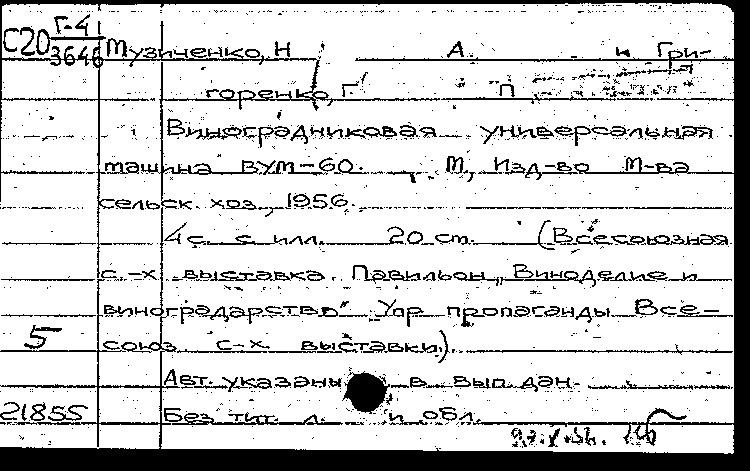 С20 Г-4/3646 Музиченко, Н А. и Гри-
горенко, Г. П
Виноградниковая универсальная
машина ВУМ-60. М, Изд-во М-ва
сельск. хоз., 1956.
4с. с илл. 20 cm. (Всесоюзная
с.-х выставка. Павильон „Виноделие и
виноградарство" Упр пропаганды Все-
5 союз с-х. выставки.).
Авт. указаны в вып дан.
21855 Без тит. л. и обл.